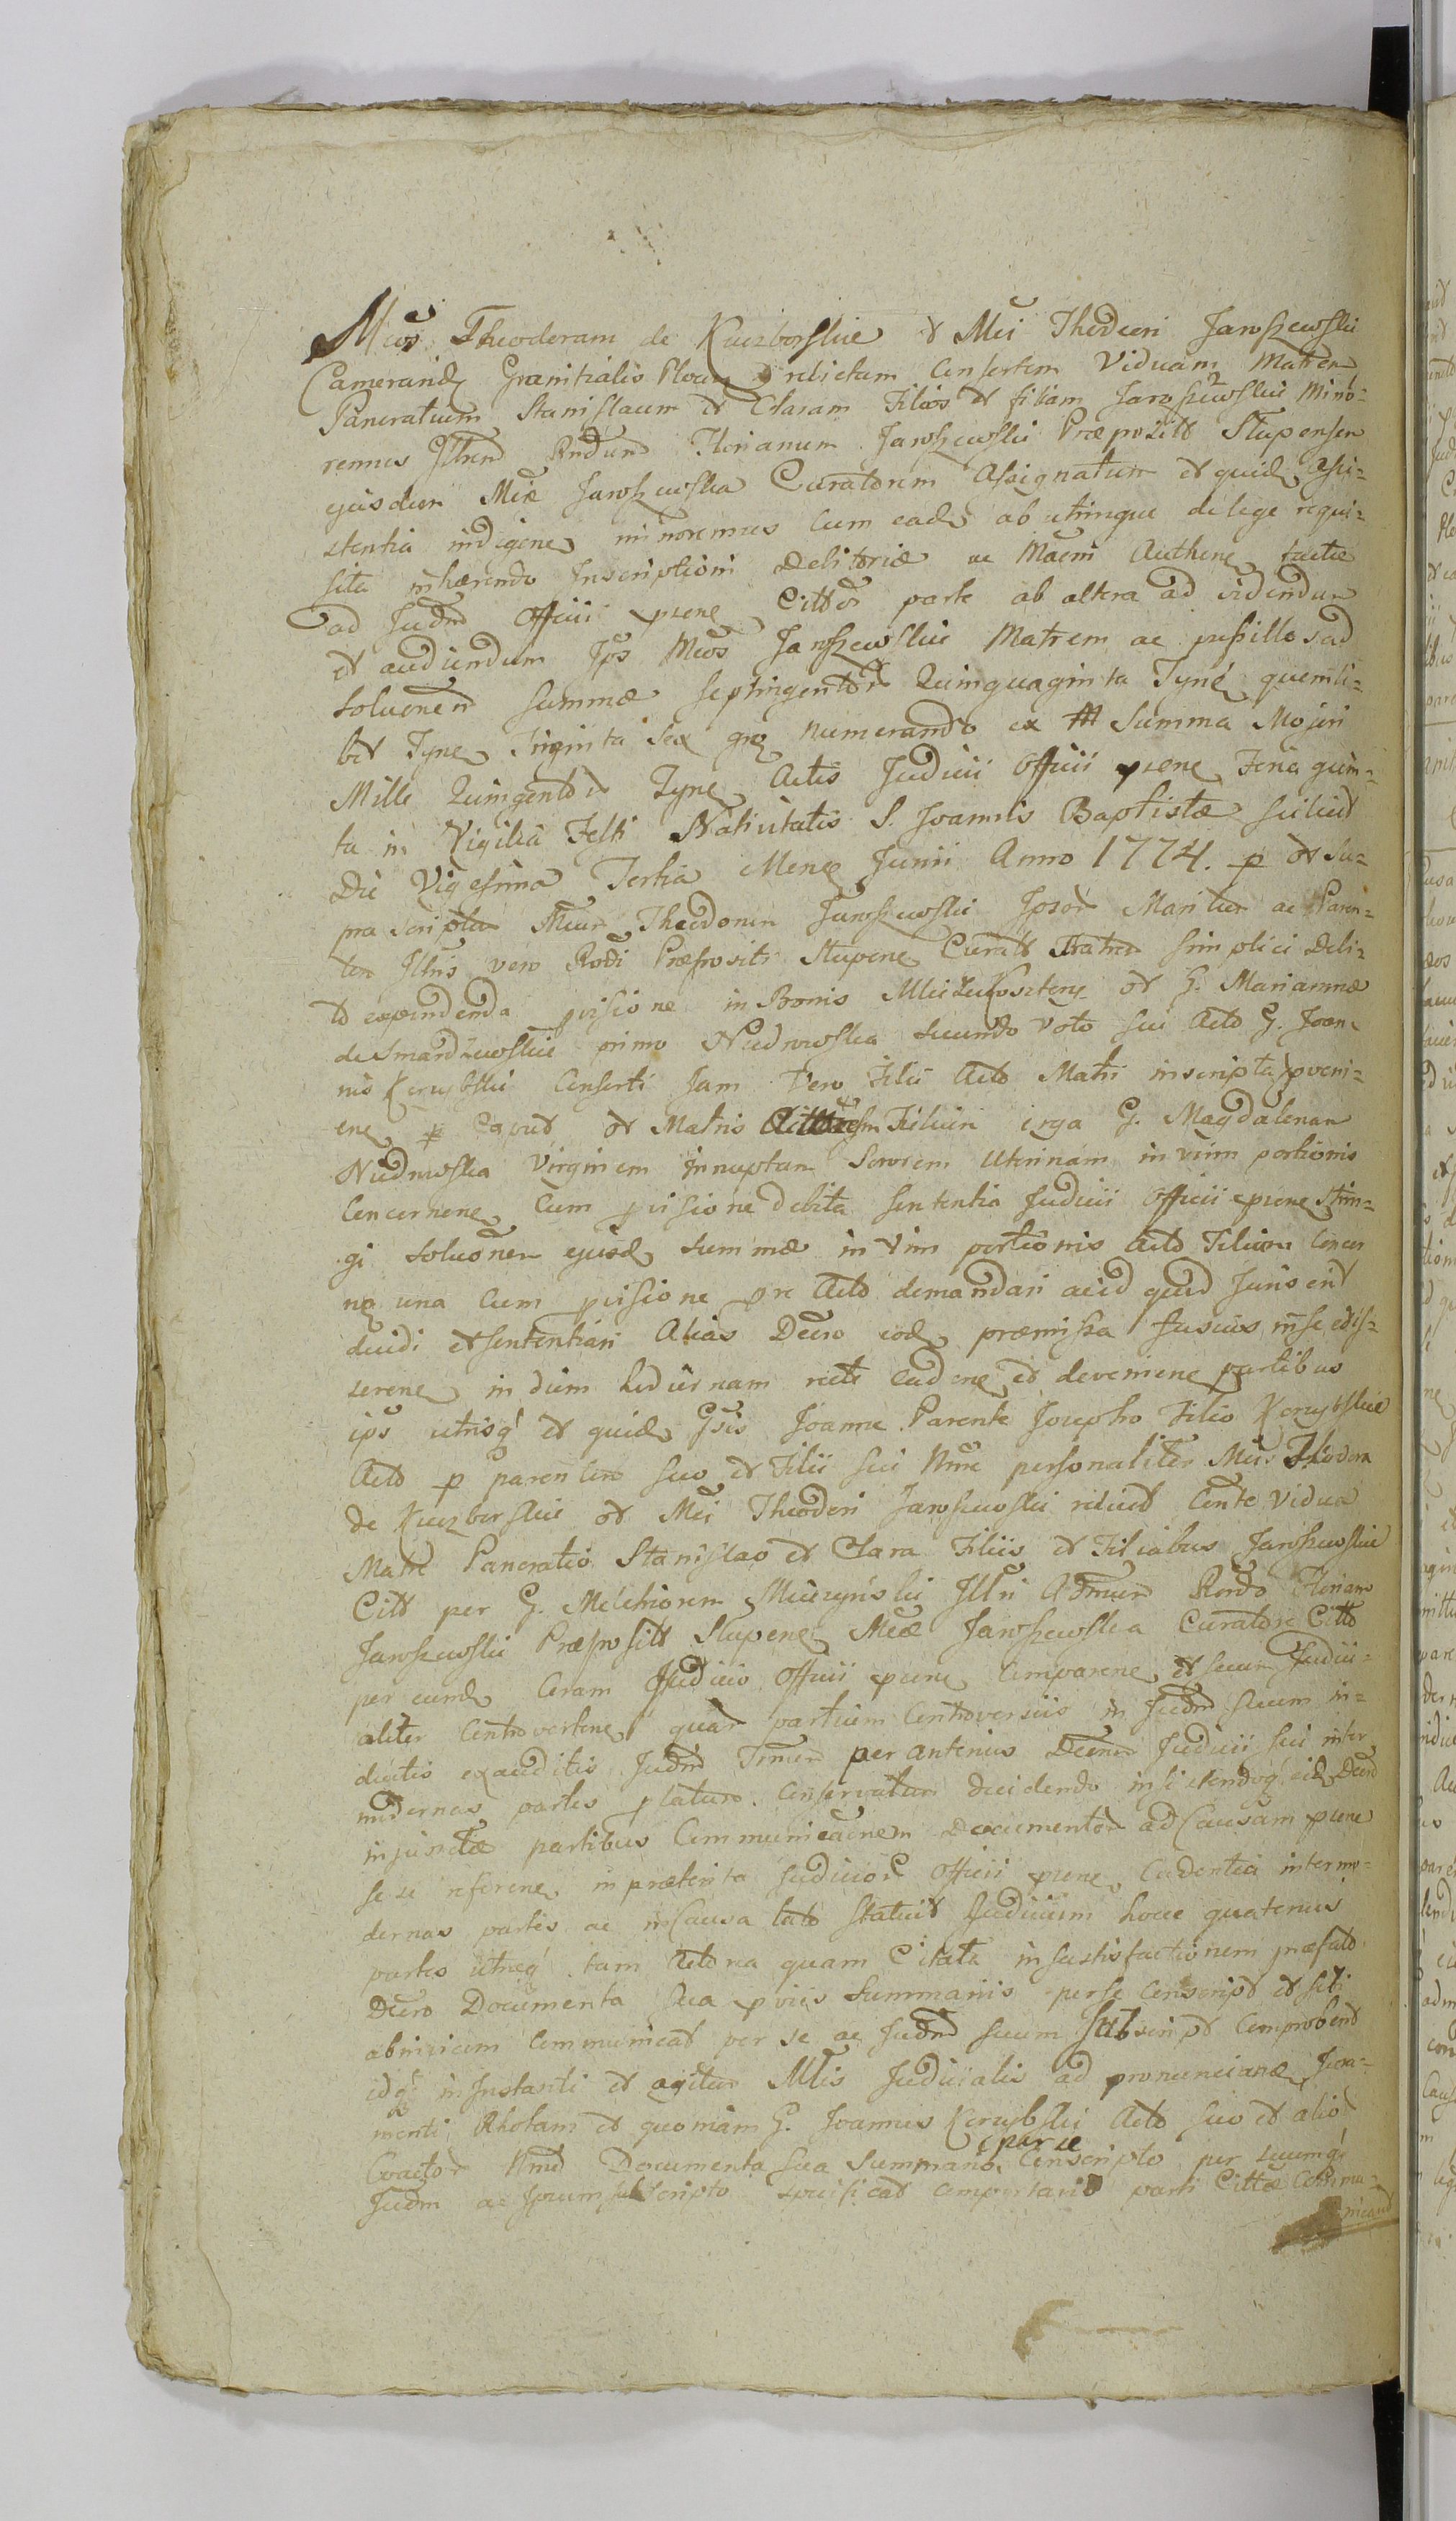 Mcos Theodoram de Kuczborskie & Mci Theodori Jaroszewski
Camerarid Granitialis Plocen relictam Consortem Viduam Matrem
Pancratium Stanislaum et Claram Filios et filiam Jaroszewskie Mino-
rennes Illrnd Rndum Florianum Jaroszewski Præposits Stupensen
ejusdem Mcæ Jaroszewska Curatorem Assignatum et quid Assi-
stentia indigene minorennes Cum eade ab utrinque de lege requi-
sita inhærendo Inscriptioni Debitoriæ ac Authene factæ
ad Judm Officii psene Cittos parte ab altera ad videndum
et audiendum Ips Mcos Jaroszewskie Matrem ac pupillos ad
Soluonem Summæ Septingentor Quinquaginta Tyne quemli-
bet Tyne Triginta Sex gros numerando ex Summa Majori
Mille Quingentor Tyne Actis Judicii Officii psene Feria quin-
ta in Vigilia Festi Nativitatis S. Joannis Baptistæ scilicet
Die Vigesima Tertia Mense Junii Anno 1774. p et su-
pra scripta Mcum Theodorum Jaroszewski Ipsor Maritum ac Paren-
tem Illris vero Rndi Præpositi Stupene Curats Fratrem simplici Debi-
to expendenda pvisione in Bonis et G. Mariannæ
de Smardzewskie primo Niedrowska secundo voto sui Acto G. Joan-
nis Kerusbski Consorti Jam Vero Filii Acto Matri inscripta pveni-
ene p Caput et Matris Filium erga G. Magdalenam
Niedrowska Virginem Innuptam Sororem Uterinam in vim portionis
Concernene Cum pvisione debita Sententia Judicii Officii psene strin-
gi Soluonem ejusd Summæ in vim portionis Acto Filium Concer
ne una Cum pvisione pre Acto demandari ac id quid Juris erit
decidi et sententiari Alias Decro eod præmissa fusius in se edis-
serene in diem hodiernam recte Cadene et devemene partibus
ips utrisq et quid Gsis Joanne Parente Josepho Filio Kerusbskie
Acto p parentem suo et Filii sui Nme personaliter Mca Theodora
de Kuczborskie et Mci Theodori Jaroszewski relict Conte Vidua
Matre Pancratio Stanislao et Clara Filiis et Filiabus Jaroszewskie
Citt per G. Melchiorem Mieczynski Illri Admdm Rondo Floriano
Jaroszewski Præposits Stupene Mcæ Jaroszewska Curatore Citto
per eumd Coram Judicio Officii psene Comparene et secum Judici-
aliter Controvertene quar partium Controversiis in Judm suum in-
ductis exauditis Judm Prmm per antenius Decrum Judicii sui inter
modernas partes platum Conservatum decidendo insistendoq eid Decro
injunctæ partibus Communicaonem Documentor ad Causam psene
sese referene in præterita Judicior Officii psene Cadentia intermo-
dernas partes ac in Causa lato Statuit Judicium hocce quatenus
partes utraq tam Actorea quam Citata in satisfactionem præfato
Decro Documenta sua pviis Summariis per se Conscript et sibi
abinvicem Communicat per se ac Judm suum Subscript Comprobent
idq in Instanti et agitur Mtis Judicialis ad pronuncianæ Jura-
menti Rhotam et quoniam G. Joannes Kerusbski Acto suo et alior
Coactor Nme Documenta sua Summario, per se Conscripto per suumq
Judm ac Ipsum subscripto specificat comportavit parti Cittæ Commu-
nicand